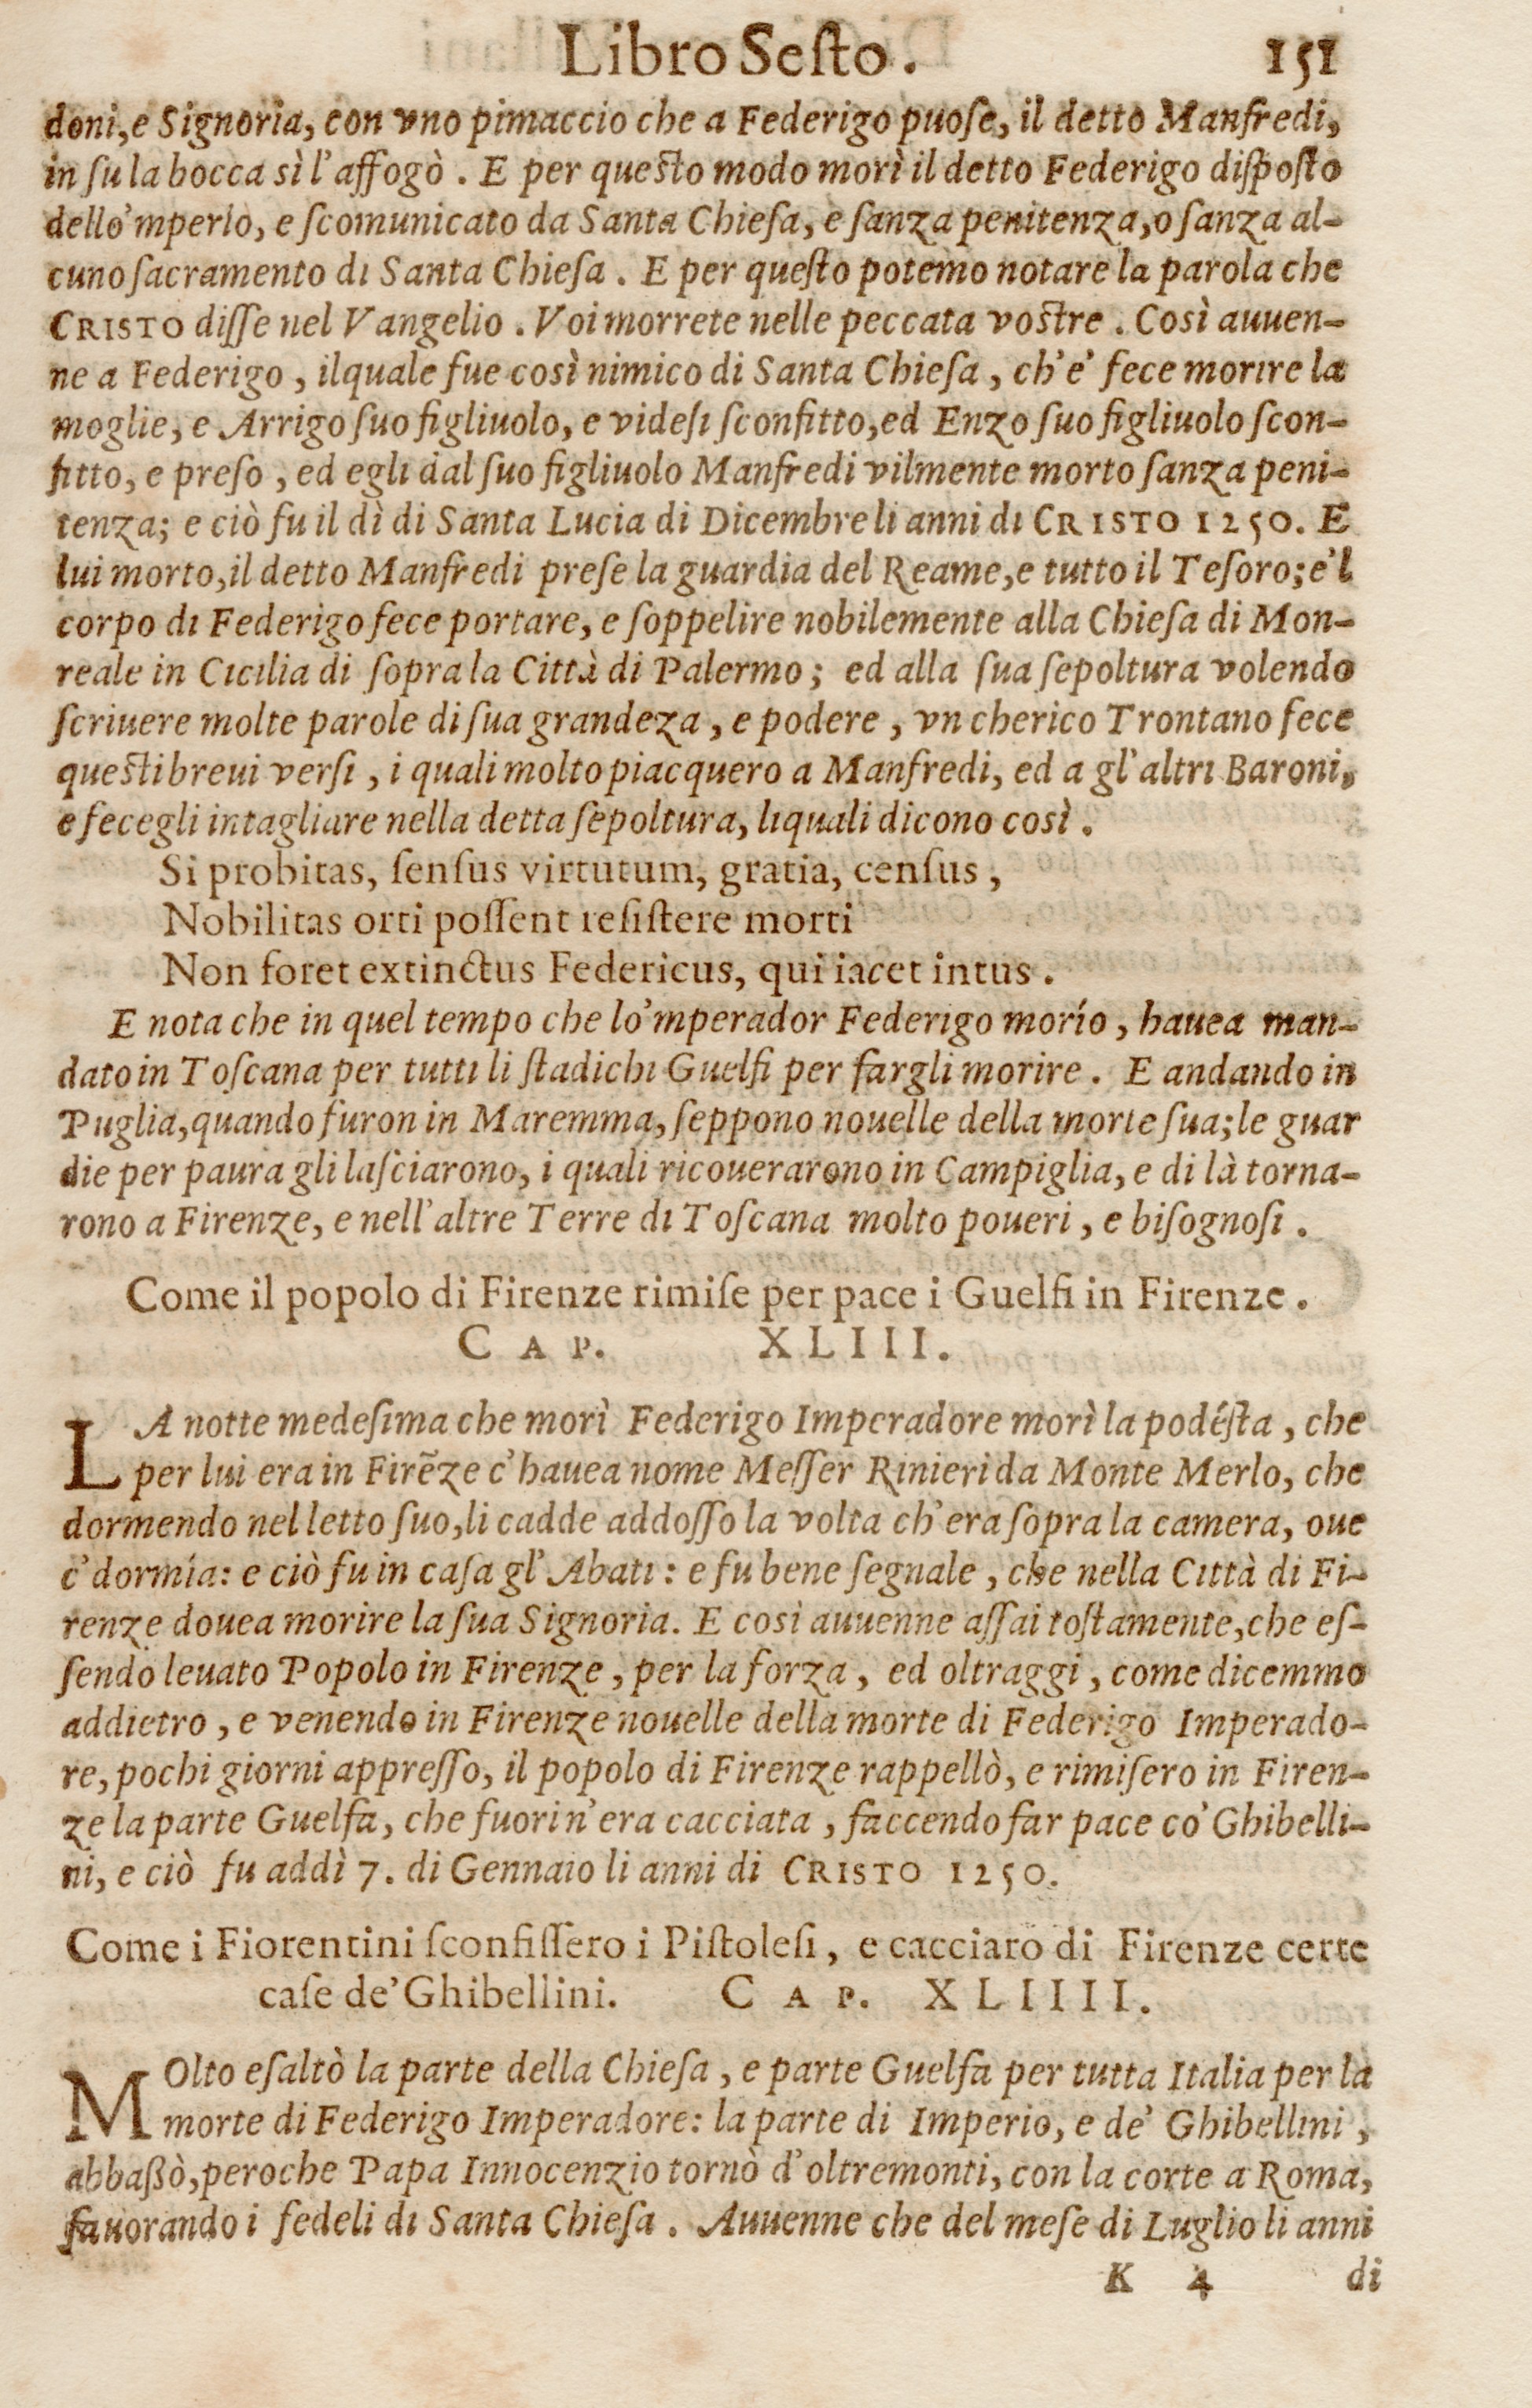 Libro Seſto. 151
doni, e Signoria, con vno pimaccio che a Federigo puoſe, il detto Manfredi,
in ſu la bocca sì l'affogò. E per queſto modo morì il detto Federigo diſpoſto
dello'mperio, e ſcomunicato da Santa Chieſa, e ſanza penitenza, o ſanza al-
cuno ſacramento di Santa Chieſa. E per queſto potemo notare la parola che
CRISTO diſſe nel Vangelio. Voi morrete nelle peccata voſtre. Così auuen-
ne a Federigo, ilquale fue così nimico di Santa Chieſa, ch'e' fece morire la
moglie, e Arrigo ſuo figliuolo, e videſi ſconfitto, ed Enzo ſuo figliuolo ſcon-
fitto, e preſo, ed egli dal ſuo figliuolo Manfredi vilmente morto ſanza peni-
tenza; e ciò fu il dì di Santa Lucia di Dicembre li anni di CRISTO 1250. E
lui morto, il detto Manfredi preſe la guardia del Reame, e tutto il Teſoro; e'l
corpo di Federigo fece portare, e ſoppelire nobilemente alla Chieſa di Mon-
reale in Cicilia di ſopra la Città di Palermo; ed alla ſua ſepoltura volendo
ſcriuere molte parole di ſua grandeza, e podere, vn cherico Trontano fece
queſti breui verſi, i quali molto piacquero a Manfredi, ed a gl'altri Baroni,
e fecegli intagliare nella detta ſepoltura, liquali dicono così.
Si probitas, ſenſus virtutum, gratia, cenſus,
Nobilitas orti poſſent reſiſtere morti
Non foret extinctus Federicus, qui iacet intus.
E nota che in quel tempo che lo'mperador Federigo morío, hauea man-
dato in Toſcana per tutti li ſtadichi Guelfi per fargli morire. E andando in
Puglia, quando furon in Maremma, ſeppono nouelle della morte ſua; le guar
die per paura gli laſciarono, i quali ricouerarono in Campiglia, e di là torna-
rono a Firenze, e nell'altre Terre di Toſcana molto poueri, e biſognoſi.
Come il popolo di Firenze rimiſe per pace i Guelfi in Firenze.
CAP. XLIII.
LA notte medeſima che morì Federigo Imperadore morì la podéſta, che
per lui era in Firẽze c'hauea nome Meſſer Rinieri da Monte Merlo, che
dormendo nel letto ſuo, li cadde addoſſo la volta ch'era ſopra la camera, oue
e' dormía: e ciò fu in caſa gl'Abati: e fu bene ſegnale, che nella Città di Fi-
renze douea morire la ſua Signoria. E così auuenne aſſai toſtamente, che eſ-
ſendo leuato Popolo in Firenze, per la forza, ed oltraggi, come dicemmo
addietro, e venendo in Firenze nouelle della morte di Federigo Imperado-
re, pochi giorni appreſſo, il popolo di Firenze rappellò, e rimiſero in Firen-
ze la parte Guelfa, che fuori n'era cacciata, faccendo far pace co' Ghibelli-
ni, e ciò fu addì 7. di Gennaio li anni di CRISTO 1250.
Come i Fiorentini ſconfiſſero i Piſtoleſi, e cacciaro di Firenze certe
caſe de'Ghibellini. CAP. XLIIII.
MOlto eſaltò la parte della Chieſa, e parte Guelfa per tutta Italia per la
morte di Federigo Imperadore: la parte di Imperio, e de' Ghibellini,
abbaßò, peroche Papa Innocenzio tornò d'oltremonti, con la corte a Roma,
fauorando i fedeli di Santa Chieſa. Auuenne che del meſe di Luglio li anni
K 4 di